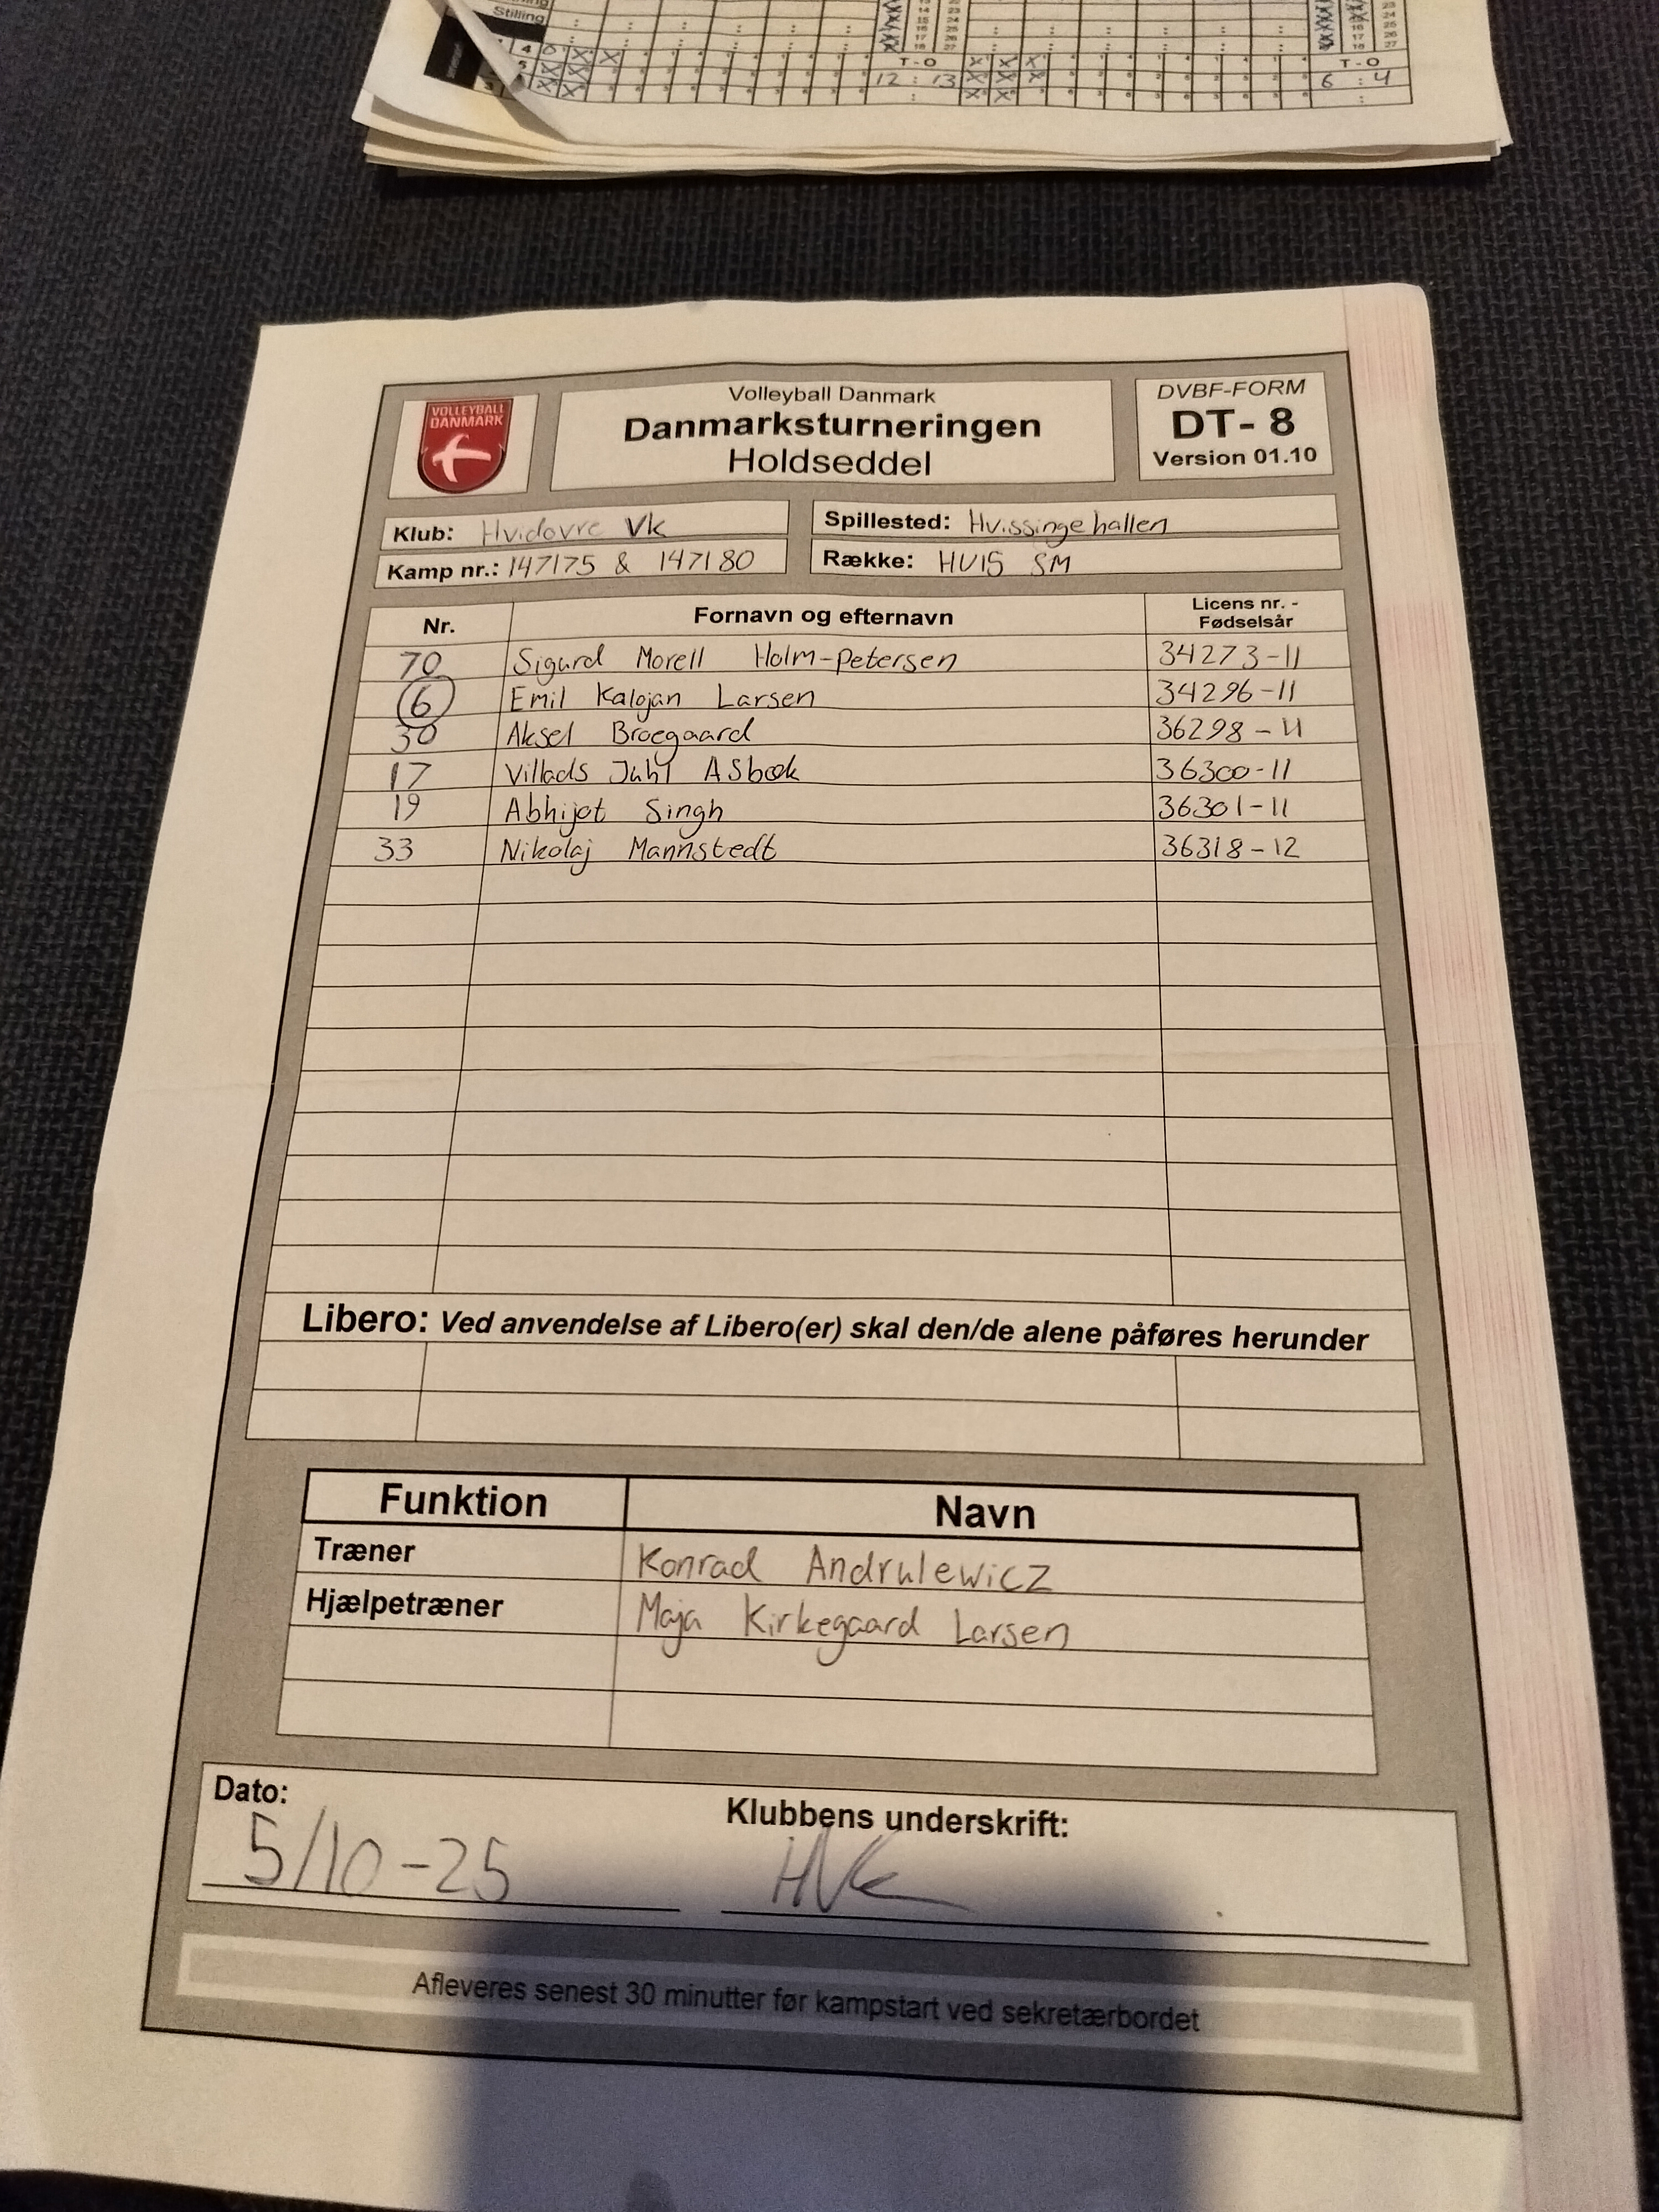 Stilling
T-O
T-O
12 : 13
6 : 4
VOLLEYBALL
DANMARK
Volleyball Danmark
Danmarksturneringen
Holdseddel
DVBF-FORM
DT- 8
Version 01.10
Klub: Hvidovre Vk
Spillested: Hvissingehallen
Kamp nr.: 147175 & 147180
Række: HU15 SM
Nr. Fornavn og efternavn Licens nr. -
Fødselsår
70 Sigurd Morell Holm-Petersen 34273-11
6 Emil Kalojan Larsen 34296-11
30 Aksel Broegaard 36298-11
17 Villads Juhl Asbæk 36300-11
19 Abhijot Singh 36301-11
33 Nikolaj Mannstedt 36318-12
Libero: Ved anvendelse af Libero(er) skal den/de alene påføres herunder
Funktion Navn
Træner Konrad Andrulewicz
Hjælpetræner Maja Kirkegaard Larsen
Dato: Klubbens underskrift:
5/10-25 HVk
Afleveres senest 30 minutter før kampstart ved sekretærbordet